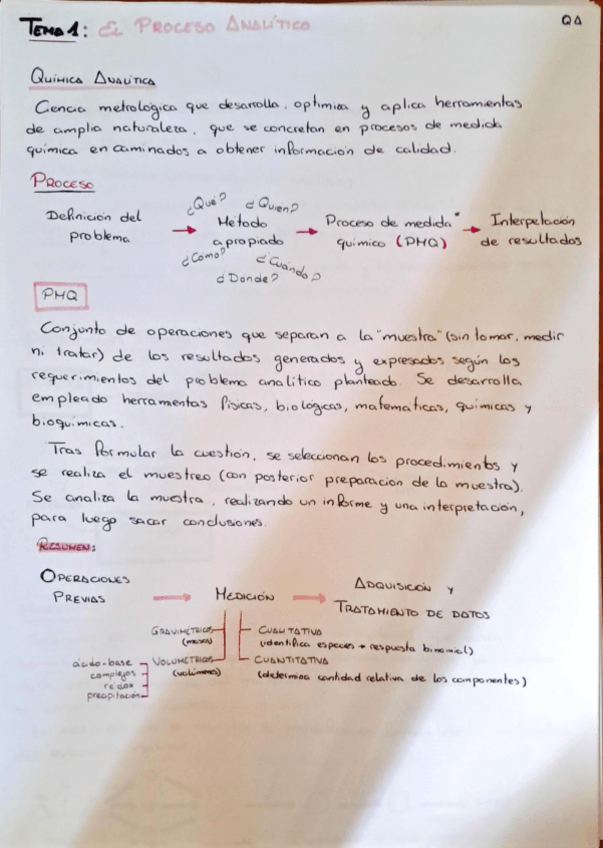 TEMA 1: EL PROCESO ANALÍTICO
QA
QUÍMICA ANALÍTICA
Ciencia metrológica que desarrolla, optimiza y aplica herramientas
de amplia naturaleza, que se concretan en procesos de medida
química encaminados a obtener información de calidad.
PROCESO
¿Qué? ¿Quién?
Definición del problema → Método apropiado → Proceso de medida* químico (PMQ) → Interpretación de resultados
¿Cómo? ¿Cuándo?
¿Dónde?
PMQ
Conjunto de operaciones que separan a la "muestra" (sin tomar, medir
ni tratar) de los resultados generados y expresados según los
requerimientos del problema analítico planteado. Se desarrolla
empleado herramentas físicas, biológicas, matemáticas, químicas y
bioquímicas.
Tras formular la cuestión, se seleccionan los procedimientos y
se realiza el muestreo (con posterior preparación de la muestra).
Se analiza la muestra, realizando un informe y una interpretación,
para luego sacar conclusiones.
RESUMEN:
OPERACIONES PREVIAS → MEDICIÓN → ADQUISICIÓN Y
TRATAMIENTO DE DATOS
GRAVIMÉTRICOS (masa)
VOLUMÉTRICOS (volúmenes)
ácido-base
complejos
redox
precipitación
CUALITATIVA
(identifica especies → respuesta binomial)
CUANTITATIVA
(determina cantidad relativa de los componentes)